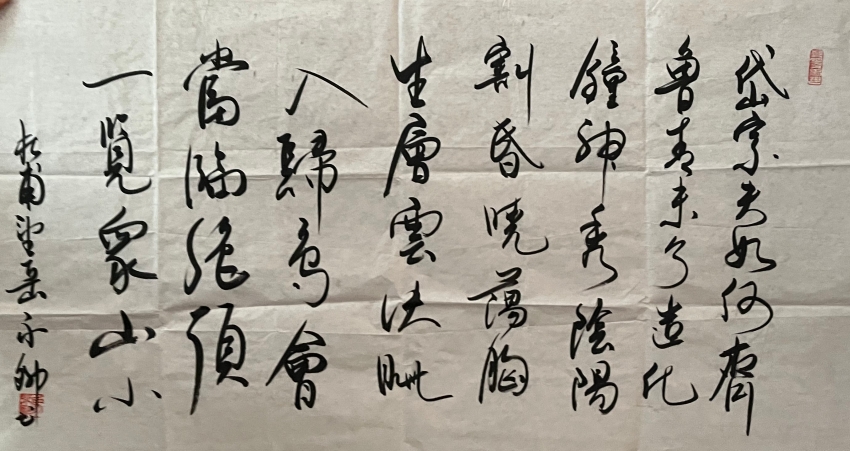 岱宗夫如何齊
魯青未了造化
鐘神秀陰陽
割昏曉蕩胸
生層雲決眦
入歸鳥會
當臨絕頂
一覽衆山小
杜甫望岳